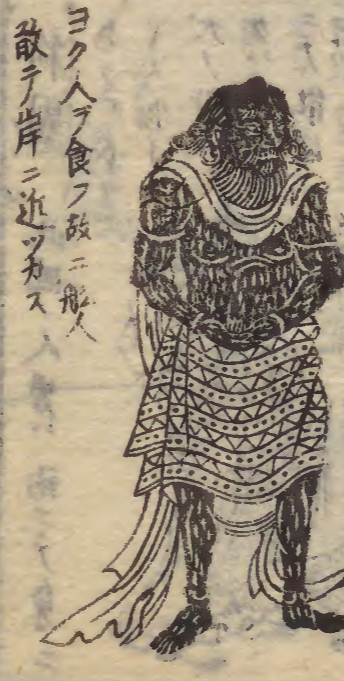 ヨク人ヲ食フ故ニ船人
敢テ岸ニ近ツカス